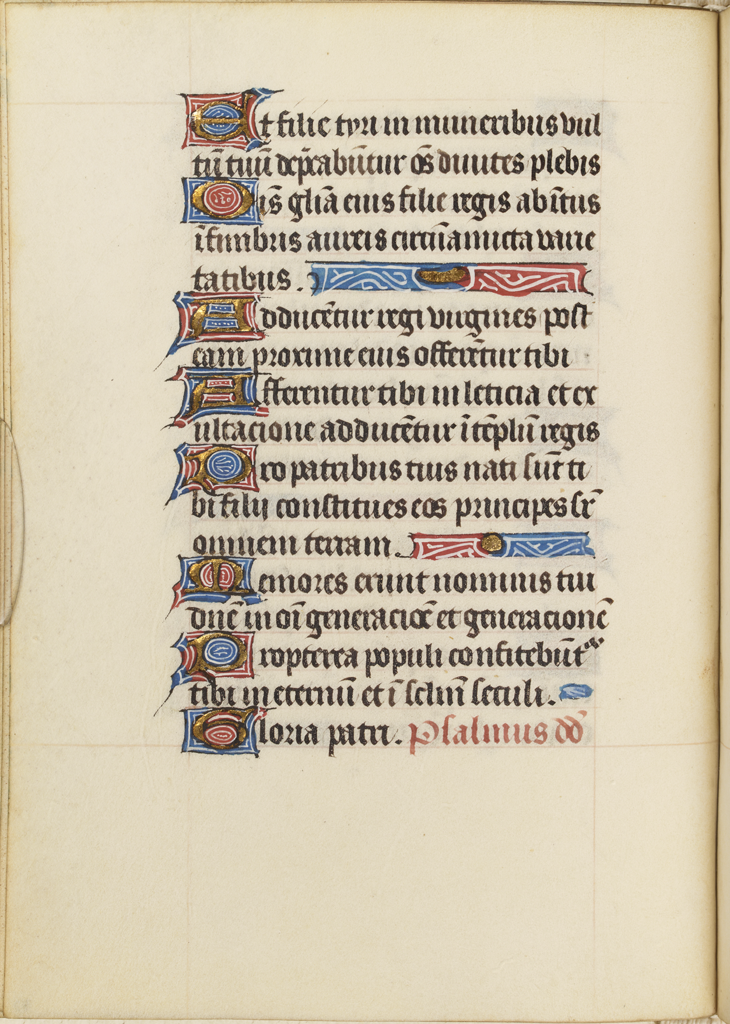 Et filie tyri in muneribus vul
tū tuū dep̄cabūtur os̄ diuites plebis
Ois̄ gl̄ia eius filie regis abītus
ī fimbriis aureis circūamicta varie
tatibus.
Adducētur regi virgines post
eam proxime eius offerētur tibi
Afferentur tibi in leticia et ex
ultacione adducētur ī tēplū regis
Pro patribus tuis nati sūt ti
bi filij constitues eos principes sr̄
omnem terram.
Memores erunt nominis tui
dn̄e in oī generacioē et generacionē
Propterea populi confitebūtᵘʳ
tibi in eternū et ī sclm̄ seculi.
Gloria patri. Psalmus dd̄